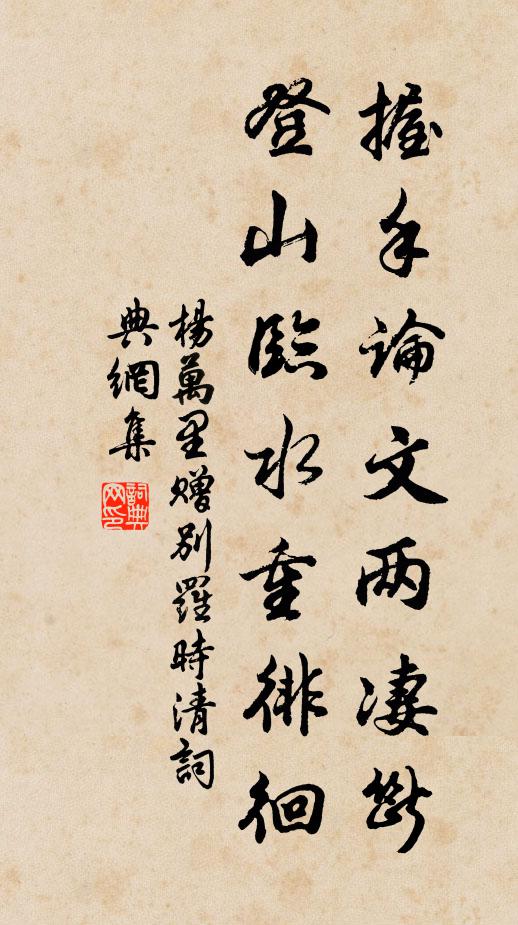 握手論文两凄斷
登山臨水重徘徊
楊萬里贈别羅時清詞
典網集
詞典
网印